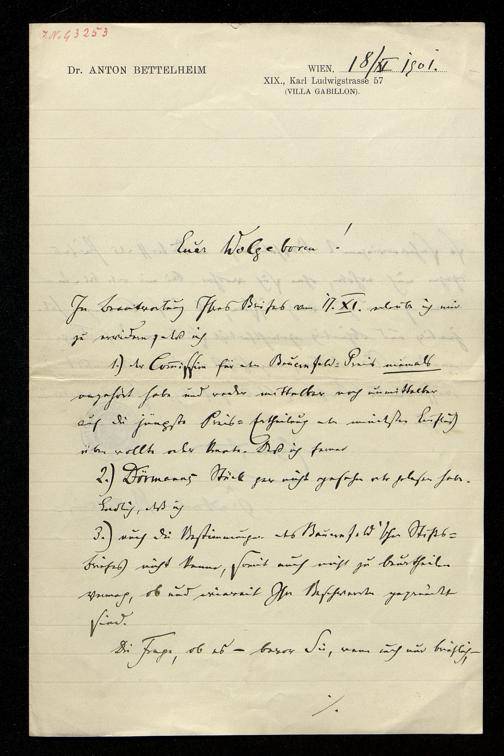 I.N. 93253
Dr. ANTON BETTELHEIM
WIEN, 18/XI 1901.
XIX., Karl Ludwigstrasse 57
(VILLA GABILLON).
Euer Wolgeboren!
In Beantwortung Ihres Briefes vom 17. XI. erlaube ich mir
zu erwidern, daß ich
1.) der Comission für den Bauernfeld-Preis niemals
angehört habe und weder mittelbar noch unmittelbar
auf die jüngste Preis-Ertheilung den mindesten Einfluß
üben wollte oder konnte. Daß ich ferner
2.) Dörmanns Stück gar nicht gesehen oder gelesen habe.
Endlich, daß ich
3.) auch die Bestimmungen des Bauernfeld'schen Stifts-
briefes nicht kenne, somit auch nicht zu beurtheilen
vermag, ob und wieweit Ihre Beschwerden gegründet
sind.
Die Frage, ob es – bevor Sie, wenn auch nur brieflich,
./.